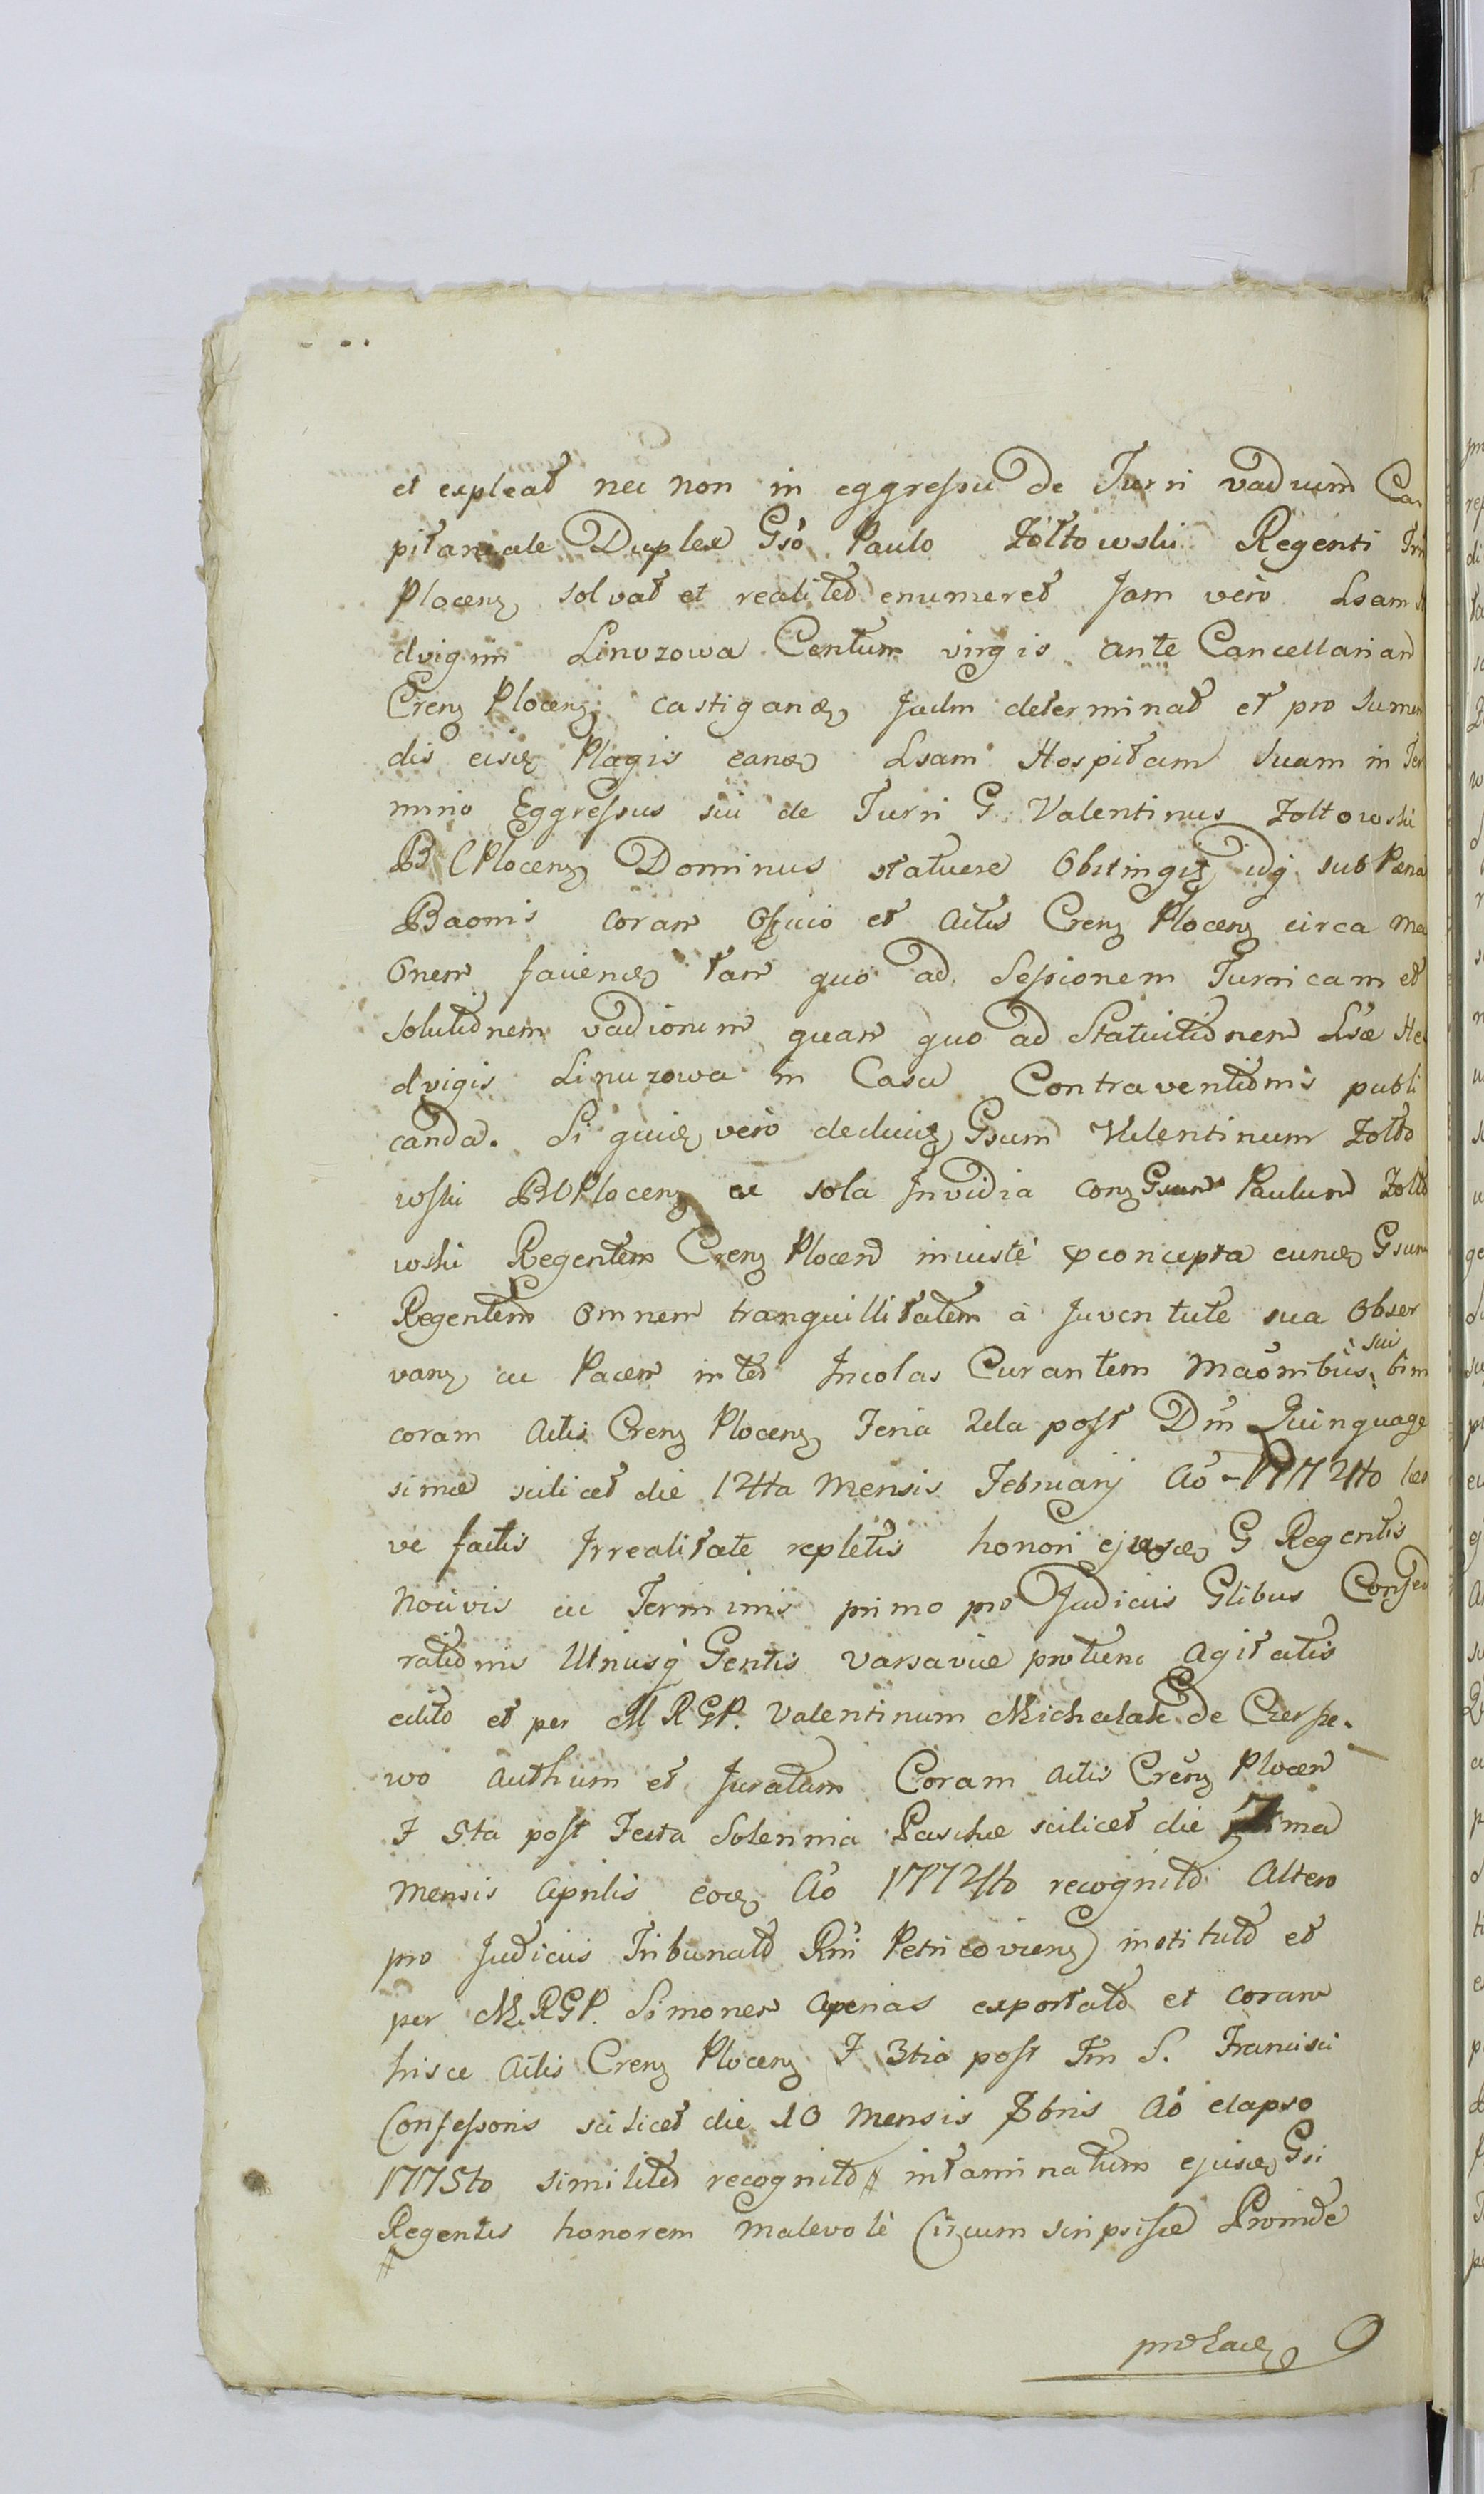 et expleat nec non in eggressu de Turri vadium Ca-
pitaneale Duplex Gso Paulo Zółtowski Regenti
Plocenz solvat et realiter enumeret Jam vero Lsam
dvigim Linozowa Centum virgis ante Cancellariam
Crenz Plocenz castiganđ Judm determinat et pro sumen
dis eisđ Plagis eanđ Lsam Hospitam suam in Ter
mino Eggressus sui de Turri G Valentinus Zoltowski
B C Plocenz Dominus statuere Obstingit idq sub Pæna
Baonis coram Officio et Actis Crenz Plocenz circa
Onem faciend tam quo ad Sessionem Turricam et
solutionem vadiorum quam quo ad Statuitionem Lsæ He
dvigis Linuzowa in Casu Contraventionis publi
canda. Si quid vero deducit Gsum Valentinum Zolto
wski BCPlocenz ex sola Invidia conz Gsum Paulum Zolto
wski Regentem Crenz Plocen iniuste concepta eund Gsum
Regentem Omnem tranquillitatem a Juventute sua Obser
vanz ac Pacem inter Incolas Curantem Maonibus sui bim
coram Actis Crenz Plocenz Feria 2da post Dm Quinquage
simæ scilicet die 12tta Mensis Februarij Ao 17724to
ve factis Irrealitate repletis honori ejusđ G Regentis
Nocivis ac Terminis primo pro Judiciis Glibus Confed
rationis Utriusq Gentis Varsaviæ protunc Agitatis
edito et per M R G P. Valentinum Michalak de
wo Authum et Juratum Coram Actis Crenz Plocen
F 5ta post Festa Solennia Paschæ scilicet die 7ma
Mensis Aprilis eođ Ao 17724to recognito Altero
pro Judiciis Tribunal Rni Petricovienz instituto et
per M. RGP. Simonem exportato et coram
hisce Actis Crenz Plocenz F 3tia post Fm S. Francisci
Confessoris scilicet die 10 Mensis 8bris Ao elapso
1775to similiter recognito # intaminatum ejusđ Gsi
Regentis honorem malevole Circum scripsisse Proinde
#